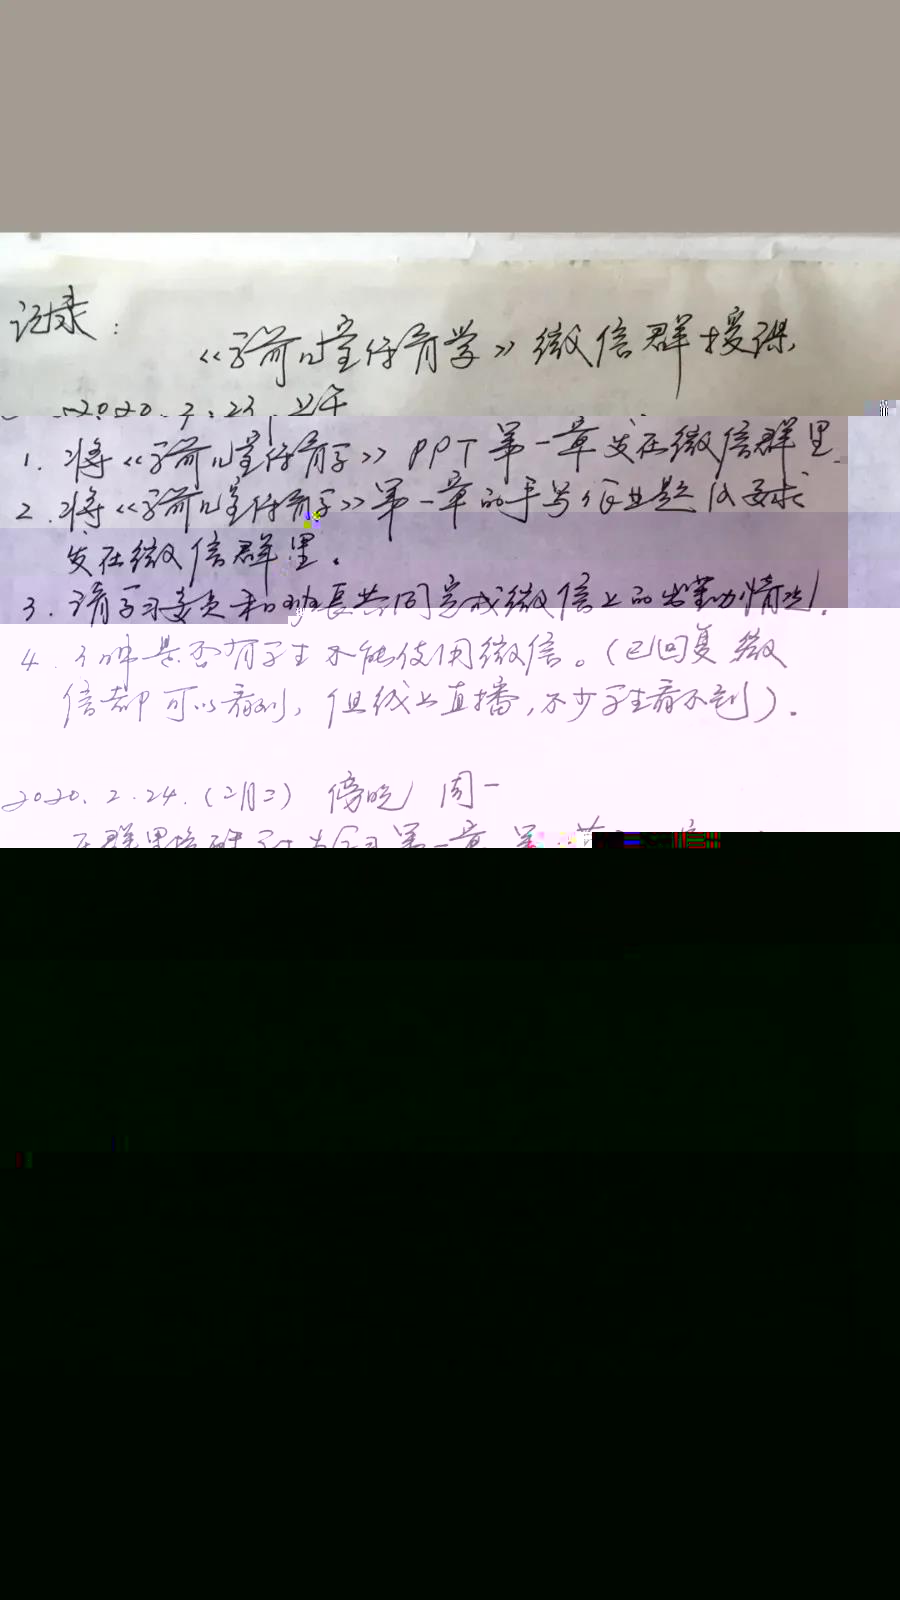 记录:
《学前儿童体育学》微信群授课
2020.2.23,上午
1.将《学前儿童体育学》PPT第一章发在微信群里.
2.将《学前儿童体育学》第一章的手写作业题及要求
发在微信群里。
3.请学习委员和班长共同完成微信上的出勤情况.
4.了解是否有学生不能使用微信。(已回复 微
信都可以看到,但线上直播,不少学生看不到).
2020.2.24.(二月二) 傍晚 周一
在群里 第一章